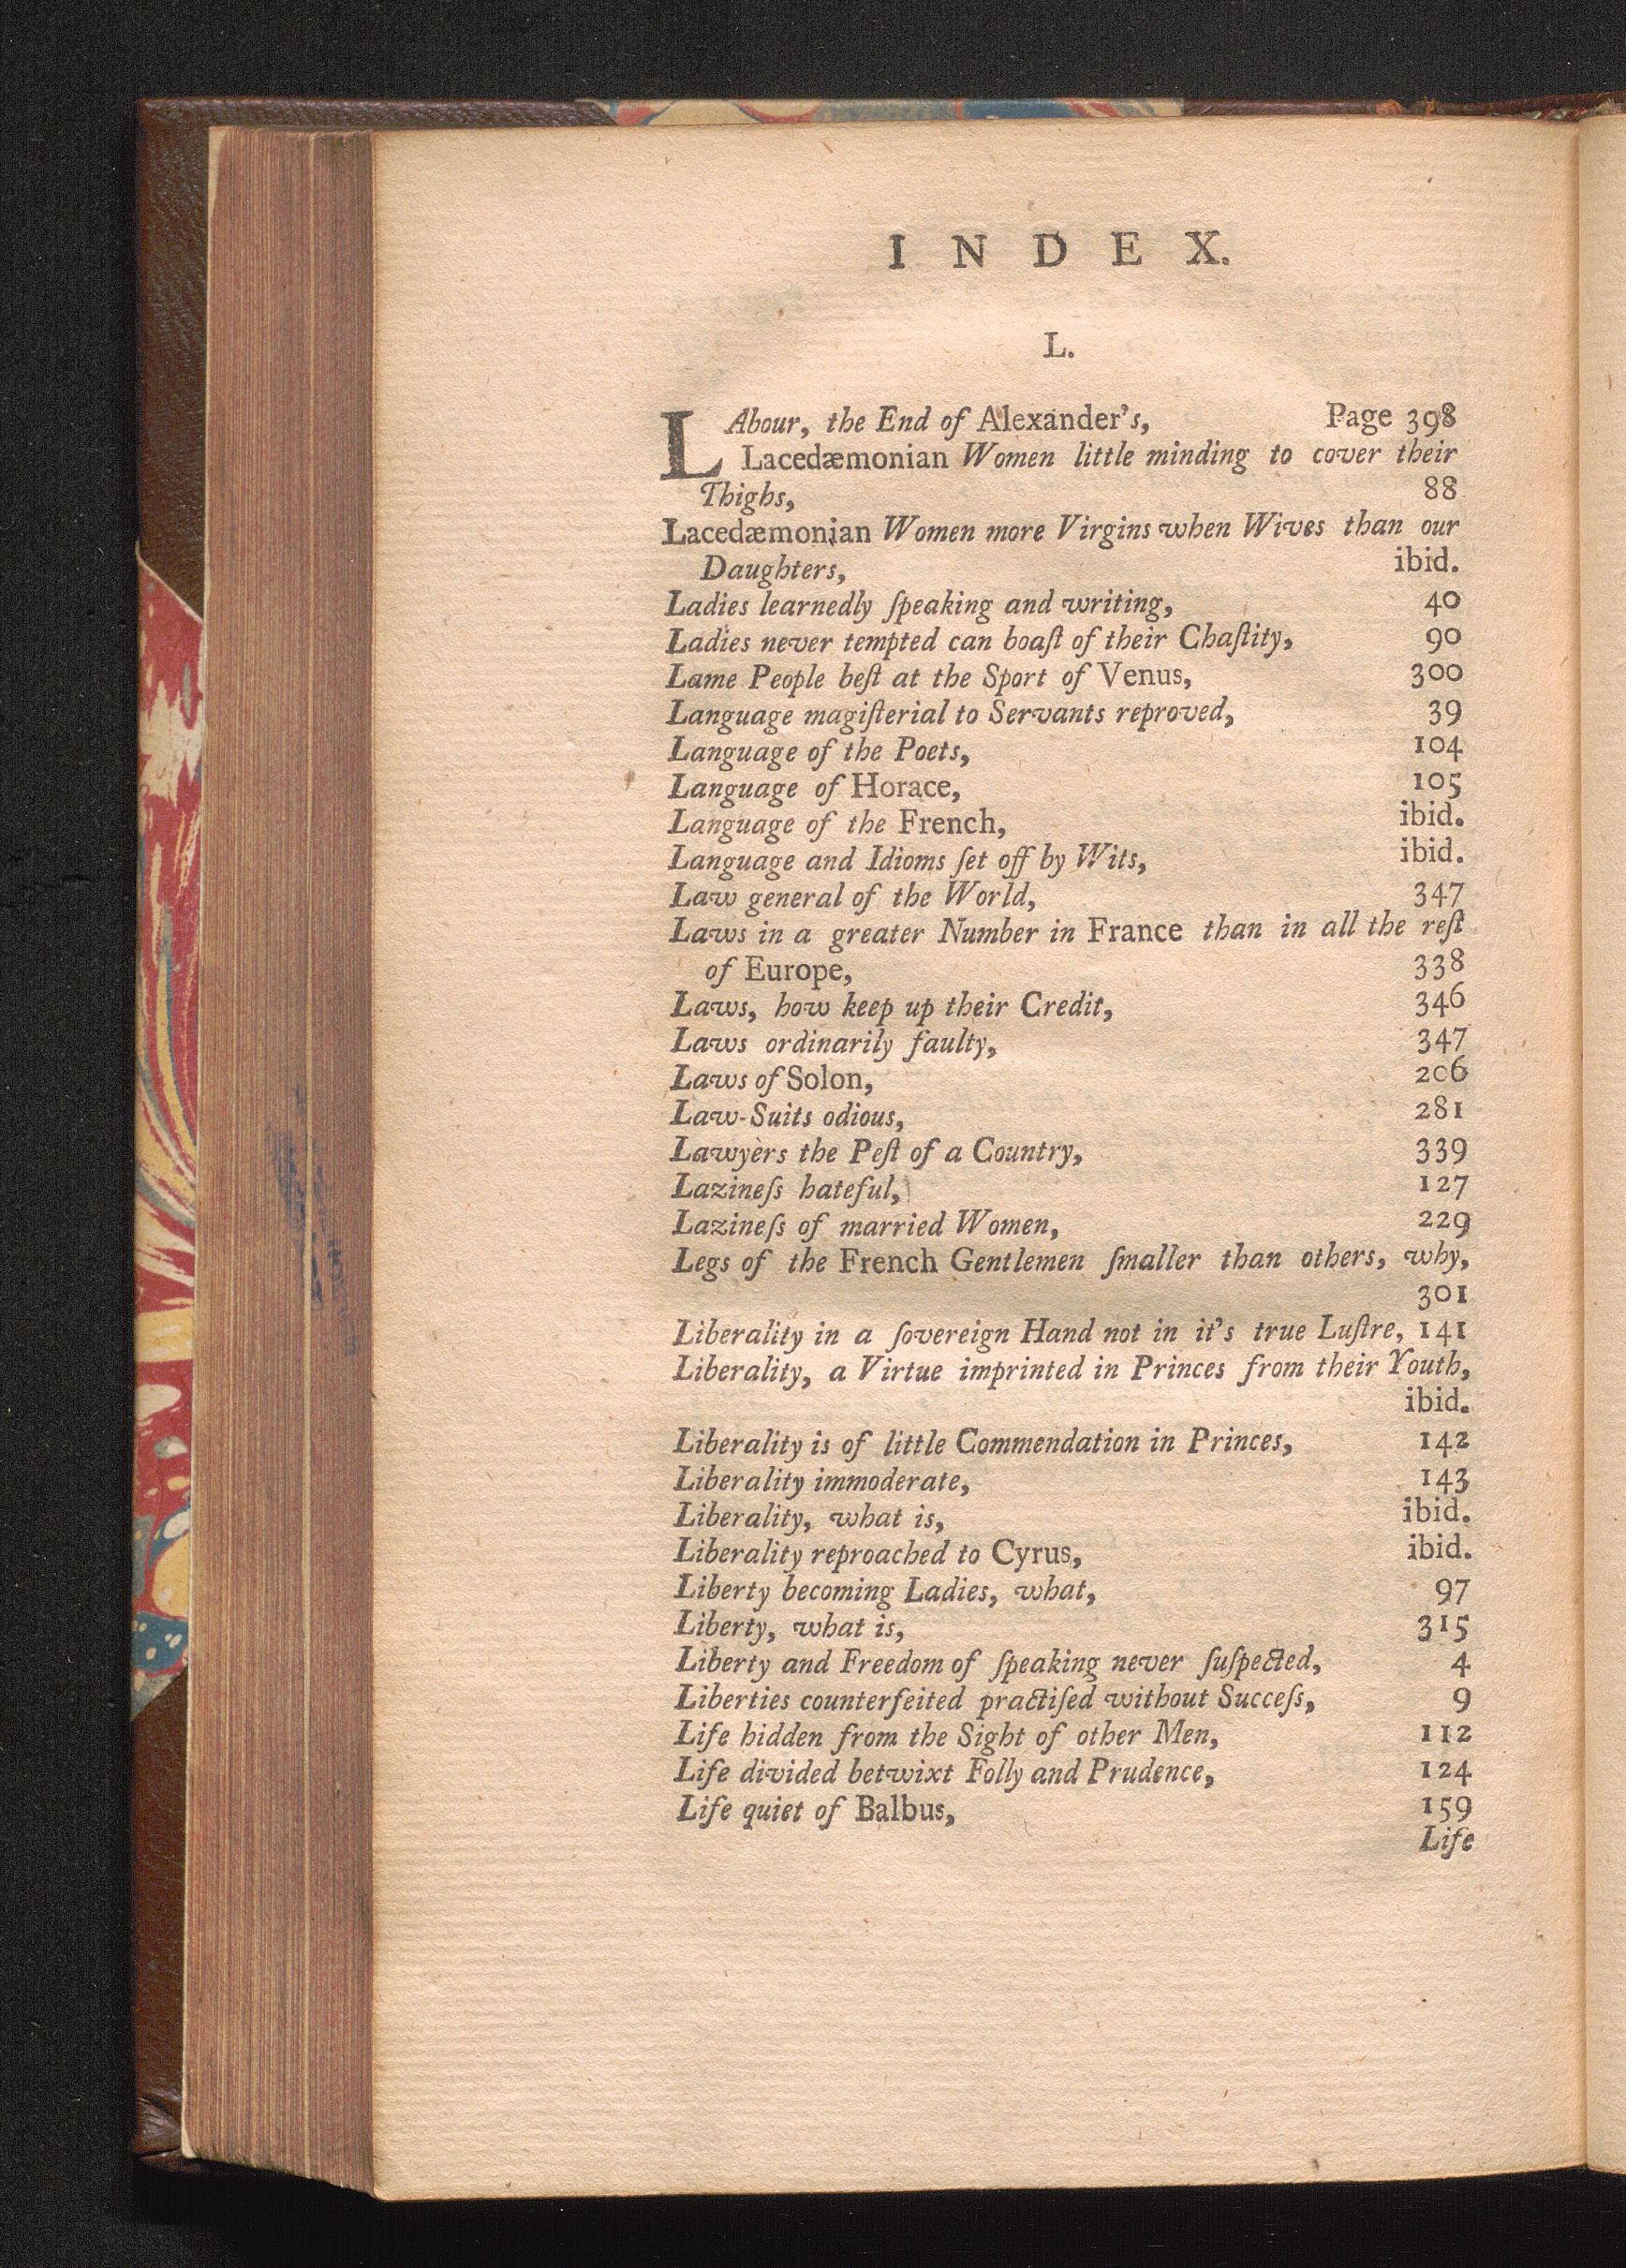 INDEX.
L.
LAbour, the End of Alexander's, Page 398
Lacedæmonian Women little minding to cover their
Thighs, 88
Lacedæmonian Women more Virgins when Wives than our
Daughters, ibid.
Ladies learnedly ſpeaking and writing, 40
Ladies never tempted can boaſt of their Chaſtity, 90
Lame People beſt at the Sport of Venus, 300
Language magiſterial to Servants reproved, 39
Language of the Poets, 104
Language of Horace, 105
Language of the French, ibid.
Language and Idioms ſet off by Wits, ibid.
Law general of the World, 347
Laws in a greater Number in France than in all the reſt
of Europe, 338
Laws, how keep up their Credit, 346
Laws ordinarily faulty, 347
Laws of Solon, 206
Law-Suits odious, 281
Lawyers the Peſt of a Country, 339
Lazineſs hateful, 127
Lazineſs of married Women, 229
Legs of the French Gentlemen ſmaller than others, why,
301
Liberality in a ſovereign Hand not in it's true Luſtre, 141
Liberality, a Virtue imprinted in Princes from their Youth,
ibid.
Liberality is of little Commendation in Princes, 142
Liberality immoderate, 143
Liberality, what is, ibid.
Liberality reproached to Cyrus, ibid.
Liberty becoming Ladies, what, 97
Liberty, what is, 315
Liberty and Freedom of ſpeaking never ſuſpected, 4
Liberties counterfeited practiſed without Succeſs, 9
Life hidden from the Sight of other Men, 112
Life divided betwixt Folly and Prudence, 124
Life quiet of Balbus, 159
Life